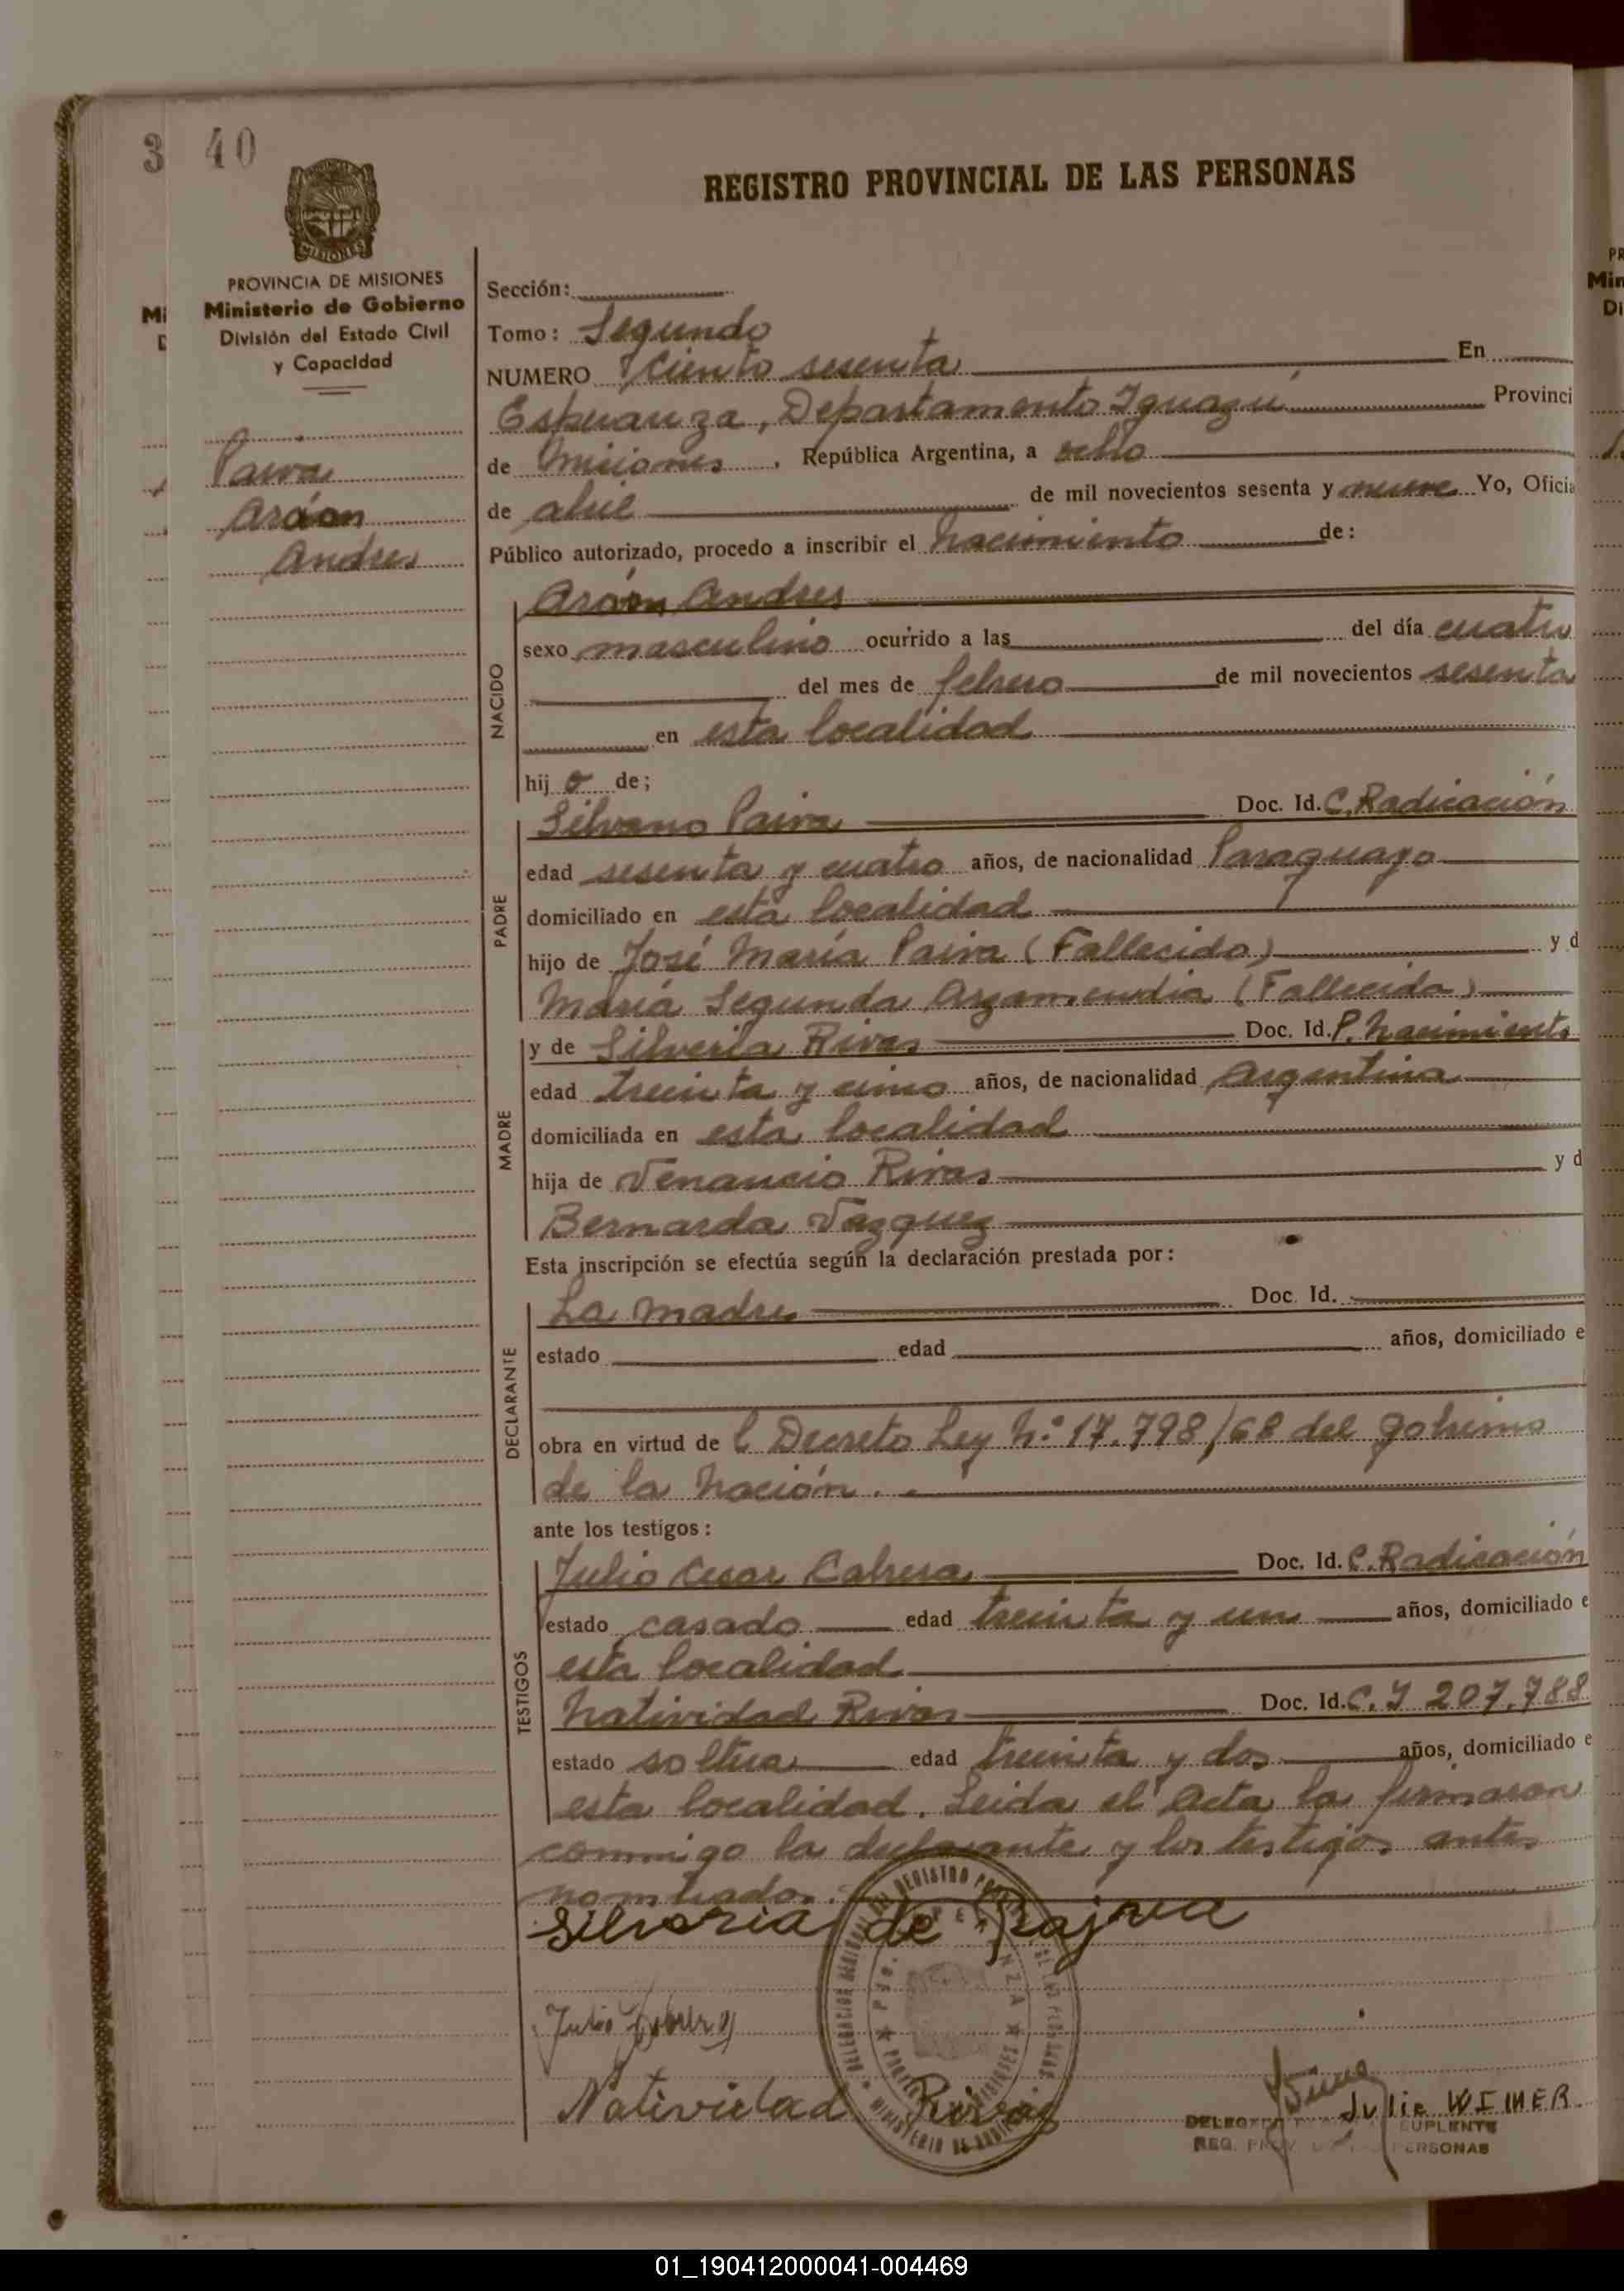 3 40
REGISTRO PROVINCIAL DE LAS PERSONAS
MISIONES
PROVINCIA DE MISIONES
Ministerio de Gobierno
División del Estado Civil
y Capacidad
Paiva
Aráon
Andres
Sección:
Tomo: Segundo
NUMERO Ciento sesenta En
Esperanza, Departamento Iguazú Provinci
de Misiones, República Argentina, a ocho
de abril de mil novecientos sesenta y nueve Yo, Oficia
Público autorizado, procedo a inscribir el Nacimiento de:
NACIDO
Aráon Andres
sexo masculino ocurrido a las del día cuatro
del mes de febrero de mil novecientos sesenta
en esta localidad
hij o de;
PADRE
Silvano Paiva Doc. Id. C. Radicación
edad sesenta y cuatro años, de nacionalidad Paraguayo
domiciliado en esta localidad
hijo de José María Paiva (Fallecido) y d
María Segunda Argamendia (Fallecida)
MADRE
y de Silveria Rivas Doc. Id. P. Nacimiento
edad treinta y cinco años, de nacionalidad Argentina
domiciliada en esta localidad
hija de Venancio Rivas y d
Bernarda Vazquez
Esta inscripción se efectúa según la declaración prestada por:
DECLARANTE
La madre Doc. Id.
estado edad años, domiciliado e
obra en virtud de l Decreto Ley N:º 17.798/68 del Gobierno
de la Nación.
ante los testigos:
TESTIGOS
Julio Cesar Cabrera Doc. Id. C. Radicación
estado casado edad treinta y un años, domiciliado e
esta localidad
Natividad Rivas Doc. Id. C. I 207.788
estado soltera edad treinta y dos años, domiciliado e
esta localidad. Leida el Acta la firmaron
conmigo la declarante y los testigos antes
nombrados.
Silveria de Pajva
Julio Cabrera
Natividad Rivas
Julio WINER
SUPLENTE
REG. PROV. PERSONAS
01_190412000041-004469